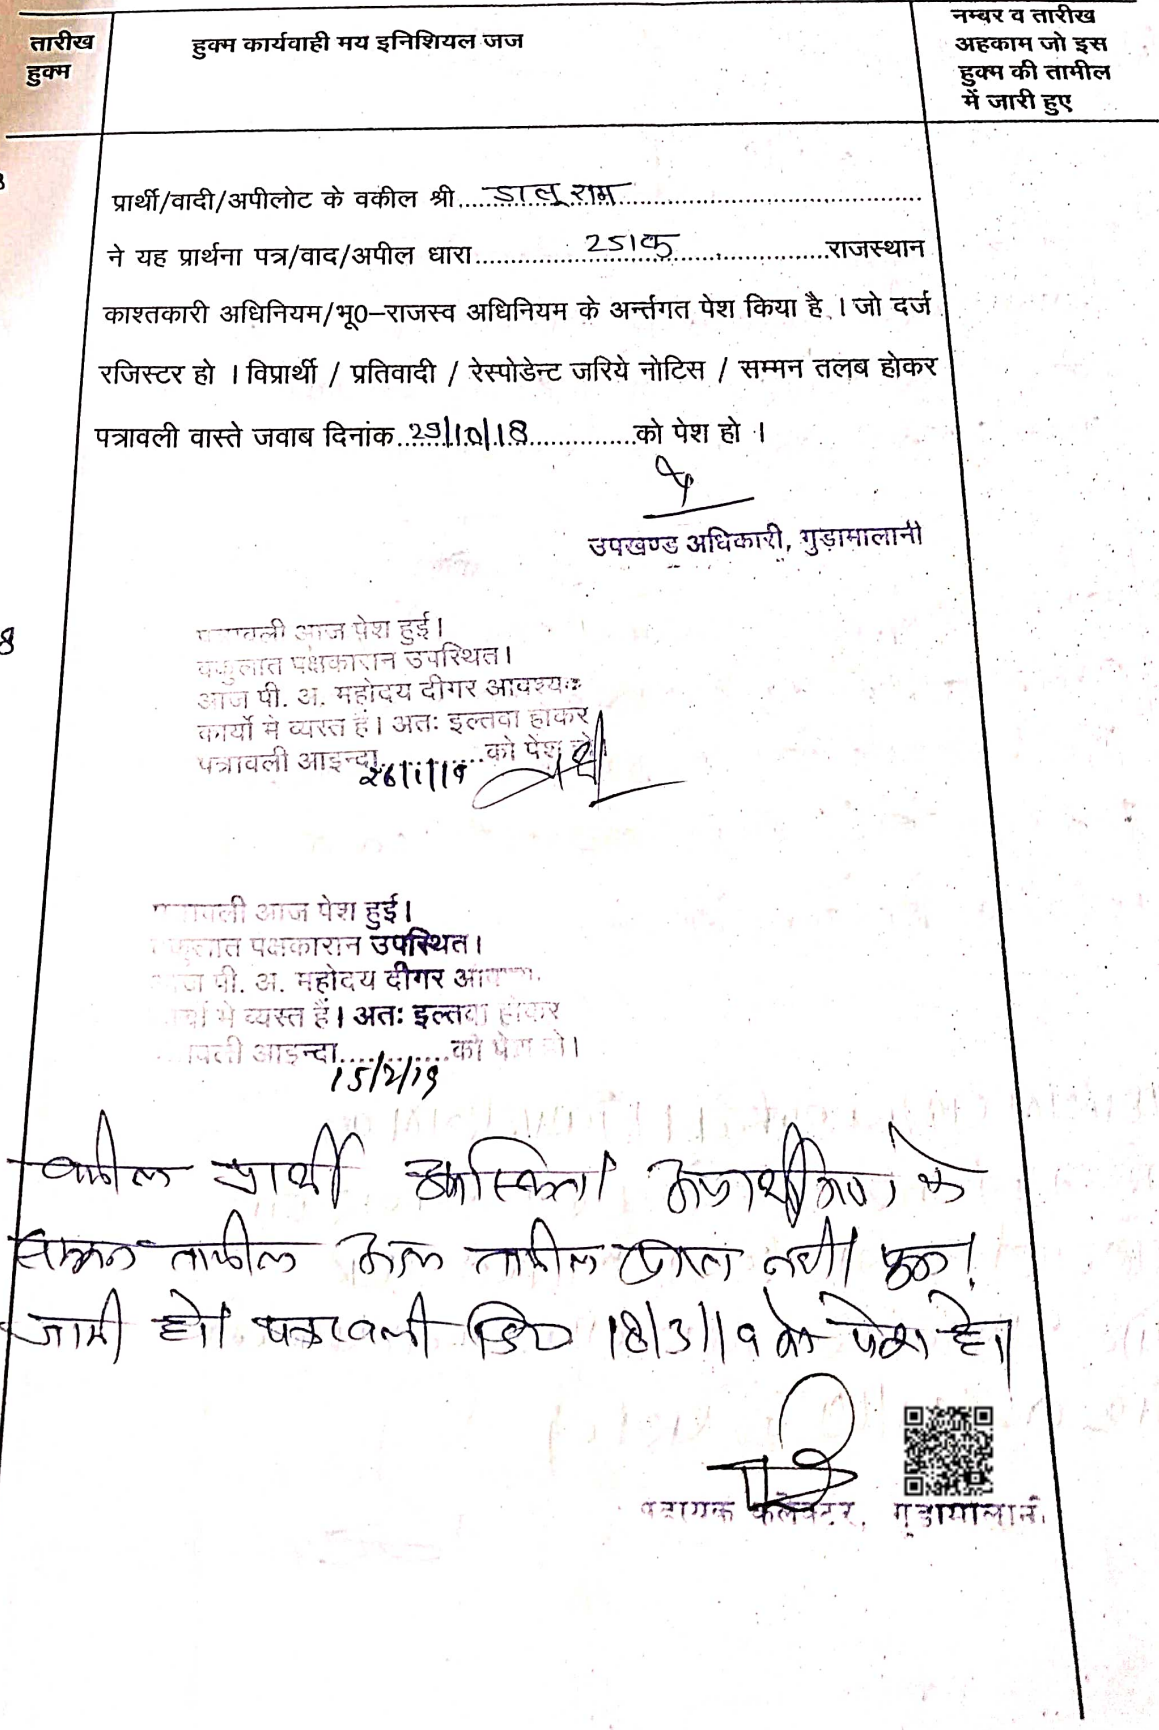 तारीख
हुक्म
हुक्म कार्यवाही मय इनिशियल जज
नम्बर व तारीख
अहकाम जो इस
हुक्म की तामील
में जारी हुए
प्रार्थी/वादी/अपीलोट के वकील श्री.....डालूराम..........
ने यह प्रार्थना पत्र/वाद/अपील धारा..........251क..........राजस्थान
काश्तकारी अधिनियम/भू0–राजस्व अधिनियम के अर्न्तगत पेश किया है । जो दर्ज
रजिस्टर हो । विप्रार्थी / प्रतिवादी / रेस्पोडेन्ट जरिये नोटिस / सम्मन तलब होकर
पत्रावली वास्ते जवाब दिनांक..29/10/18..........को पेश हो ।
उपखण्ड अधिकारी, गुड़ामालानी
8
पत्रावली आज पेश हुई।
वकुलात पक्षकारान उपस्थित।
आज पी. अ. महोदय दीगर आवश्यक
कार्यो मे व्यस्त हैं। अतः इल्तवा होकर
पत्रावली आइन्दा............को पेश हो
26/1/19
पत्रावली आज पेश हुई।
वकुलात पक्षकारान उपस्थित।
आज पी. अ. महोदय दीगर
कार्यो मे व्यस्त हैं। अतः इल्तवा होकर
पत्रावली आइन्दा............को पेश हो।
15/2/19
वकील प्रार्थी उपस्थित। अप्रार्थीगण के
सम्मन तामील तामील प्राप्त नहीं।
जारी हो। पत्रावली दि० 18/3/19 को पेश हो।
सहायक कलेक्टर, गुड़ामालानी